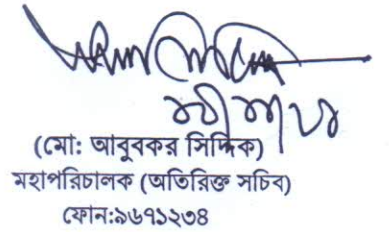 (মো: আবুবকর সিদ্দিক)
মহাপরিচালক (অতিরিক্ত সচিব)
ফোন:৯৬৭১২৩৪